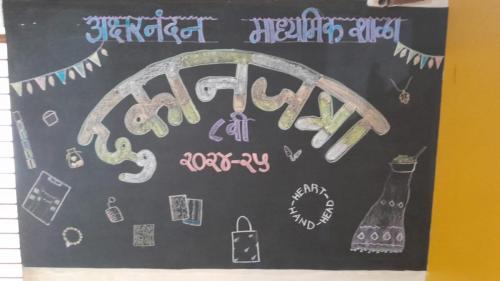 अक्षरनंदन माध्यमिक शाळा
दुकानजत्रा
८वी
२०२४-२५
HEART-HAND-HEAD